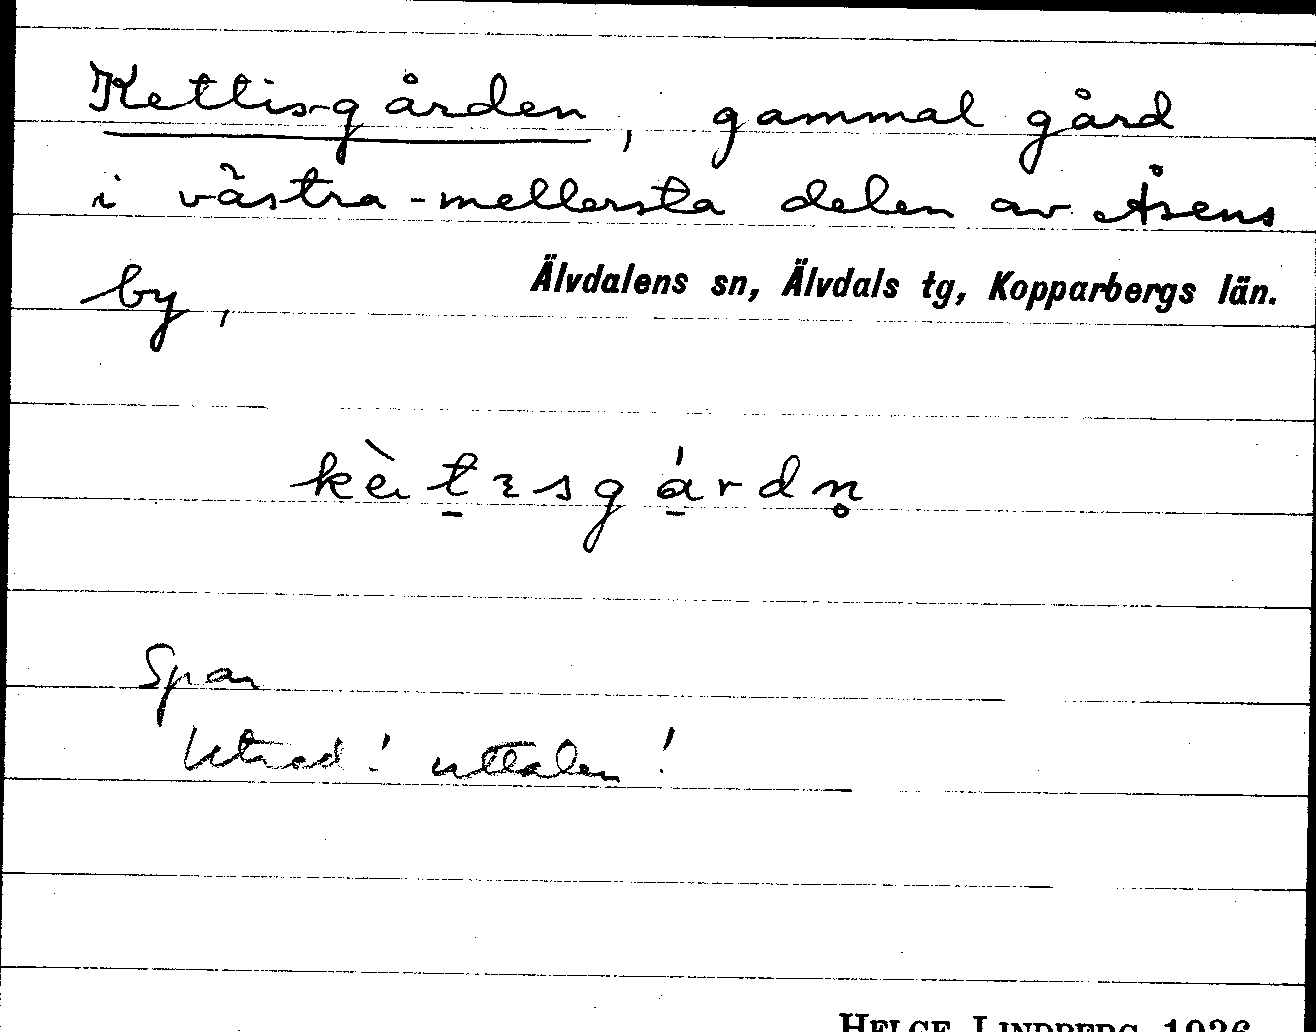 Kettisgården, gammal gård
i västra-mellersta delen av Åsens
by, Älvdalens sn, Älvdals tg, Kopparbergs län.
uttalen!
HELGE LINDBERG 1926